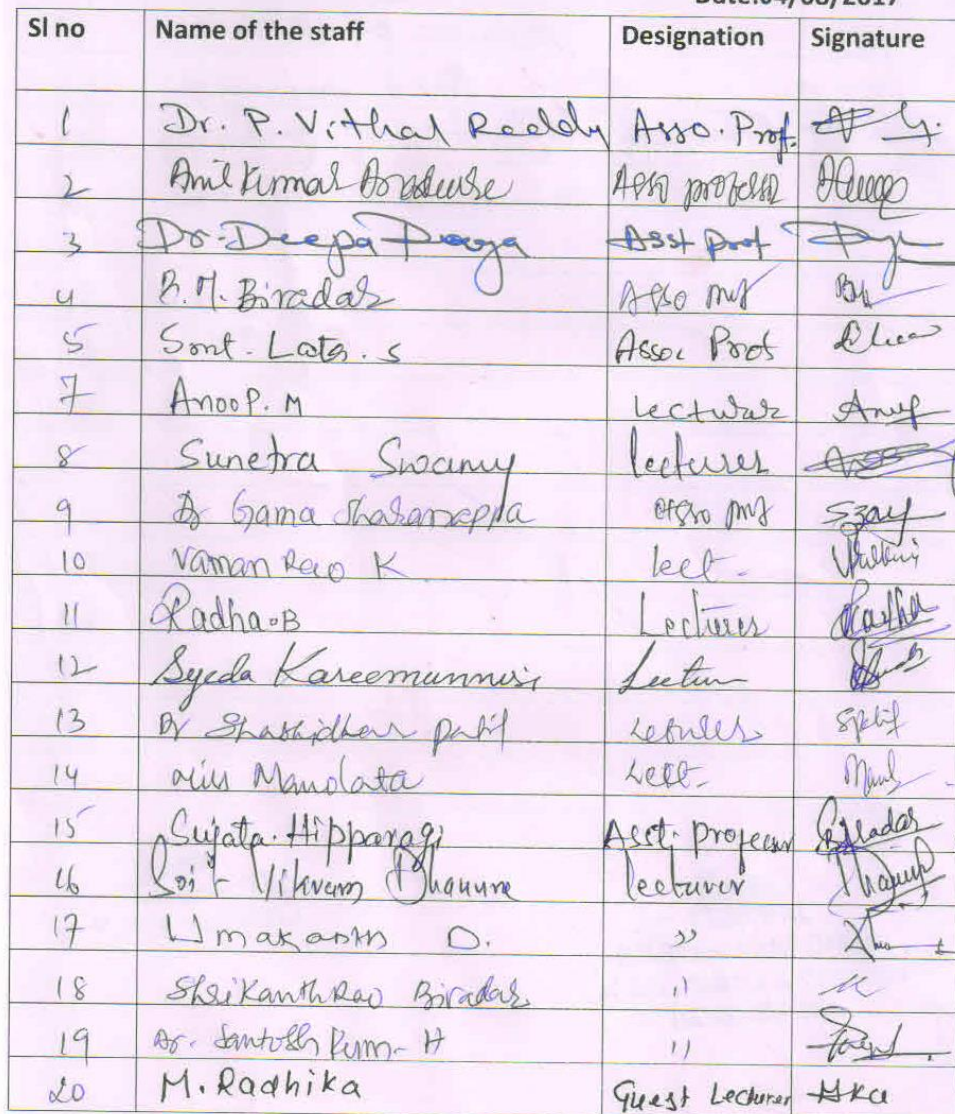 Date:04/08/2017
Sl no Name of the staff Designation Signature
1 Dr. P. Vithal Reddy Asso. Prof.
2 Anil Kumar Asso professor
3 Dr. Deepa Asst prof
4 B.M. Biradar Asso Prof
5 Smt. Lata. S Assoc Prof
7 Anoop. M Lecturer Anup
8 Sunetra Swamy lecturer
9 Dr Gama Sharanappa Asso Prof
10 Vaman Rao K. Lect.
11 Radha.B Lecturer Radha
12 Syeda Kareemunnisa Lecturer
13 Dr Shashidhar patil Lecturer
14 Miss Lect.
15 Sujata. Hipparagi Asst. Professor
16 Vikram Lecturer
17 Umakanth D. "
18 ShriKanthRao Biradar "
19 Dr. Santosh Kum- H "
20 M. Radhika Guest Lecturer